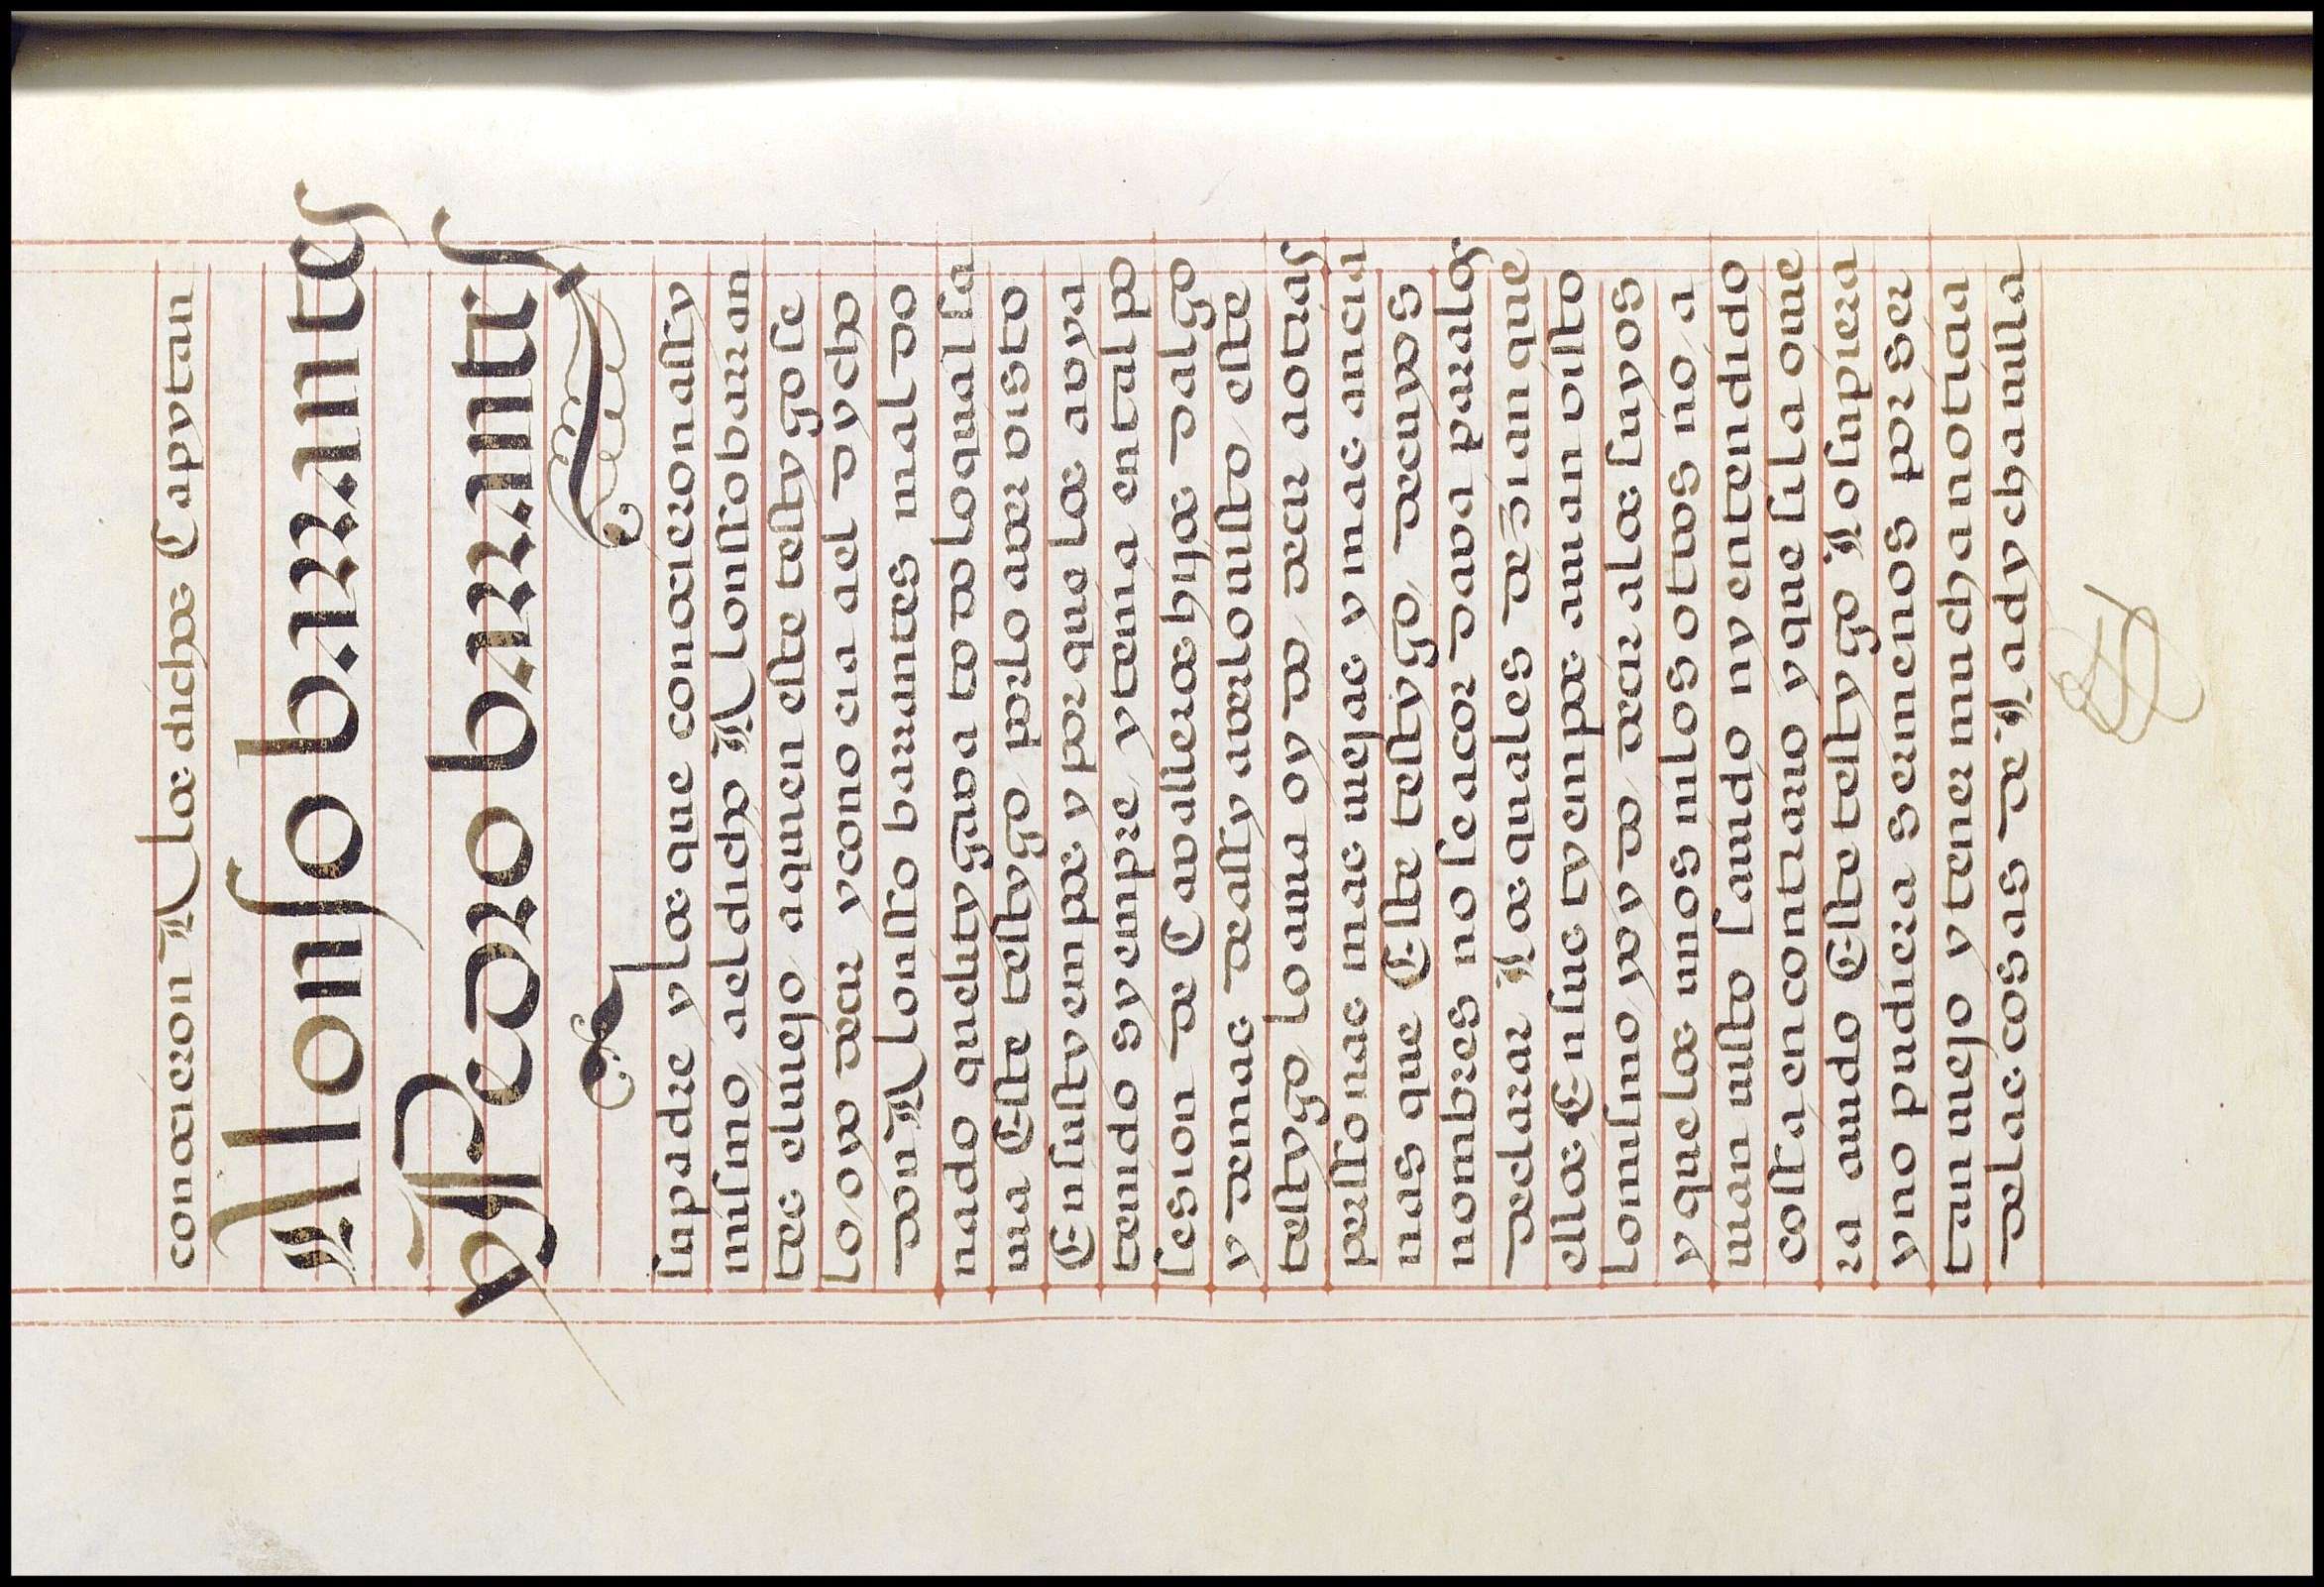 conocieron Alos dichos Capytan
Alonso barrantes
y Pedro barrantes
su padre y los que conocieron assy
mismo, a el dicho Alonsso barran
tes el viejo, a quien este testygo se
lo oyo decir y conocia a el dycho
don Alonsso barrantes mal do
nado que litygava todo lo qual sa
via Este testygo, por lo aver visto
En su tyempo y por que los avya
tenido syempre, y tenia en tal po
sesion de Cavalleros hijos dalgo
y demas de assy averlo visto, este
testygo, lo avia oydo, decir a otras
perssonas mas viejas y mas ancia
nas que Este testygo, de cuyos
nombres no se acordava para los
declarar Los quales dezian que
ellos En sus tyempos avian visto
lo mismo, y oydo, decir a los suyos
y que los unos ni los otros no, a
vian visto Savido ny entendido
cossa en contrario y que si la ovie
ra avido Este testygo Lo supiera
y no pudiera ser menos por ser
tan viejo y tener mucha noticia
de las cosas de La dycha villa